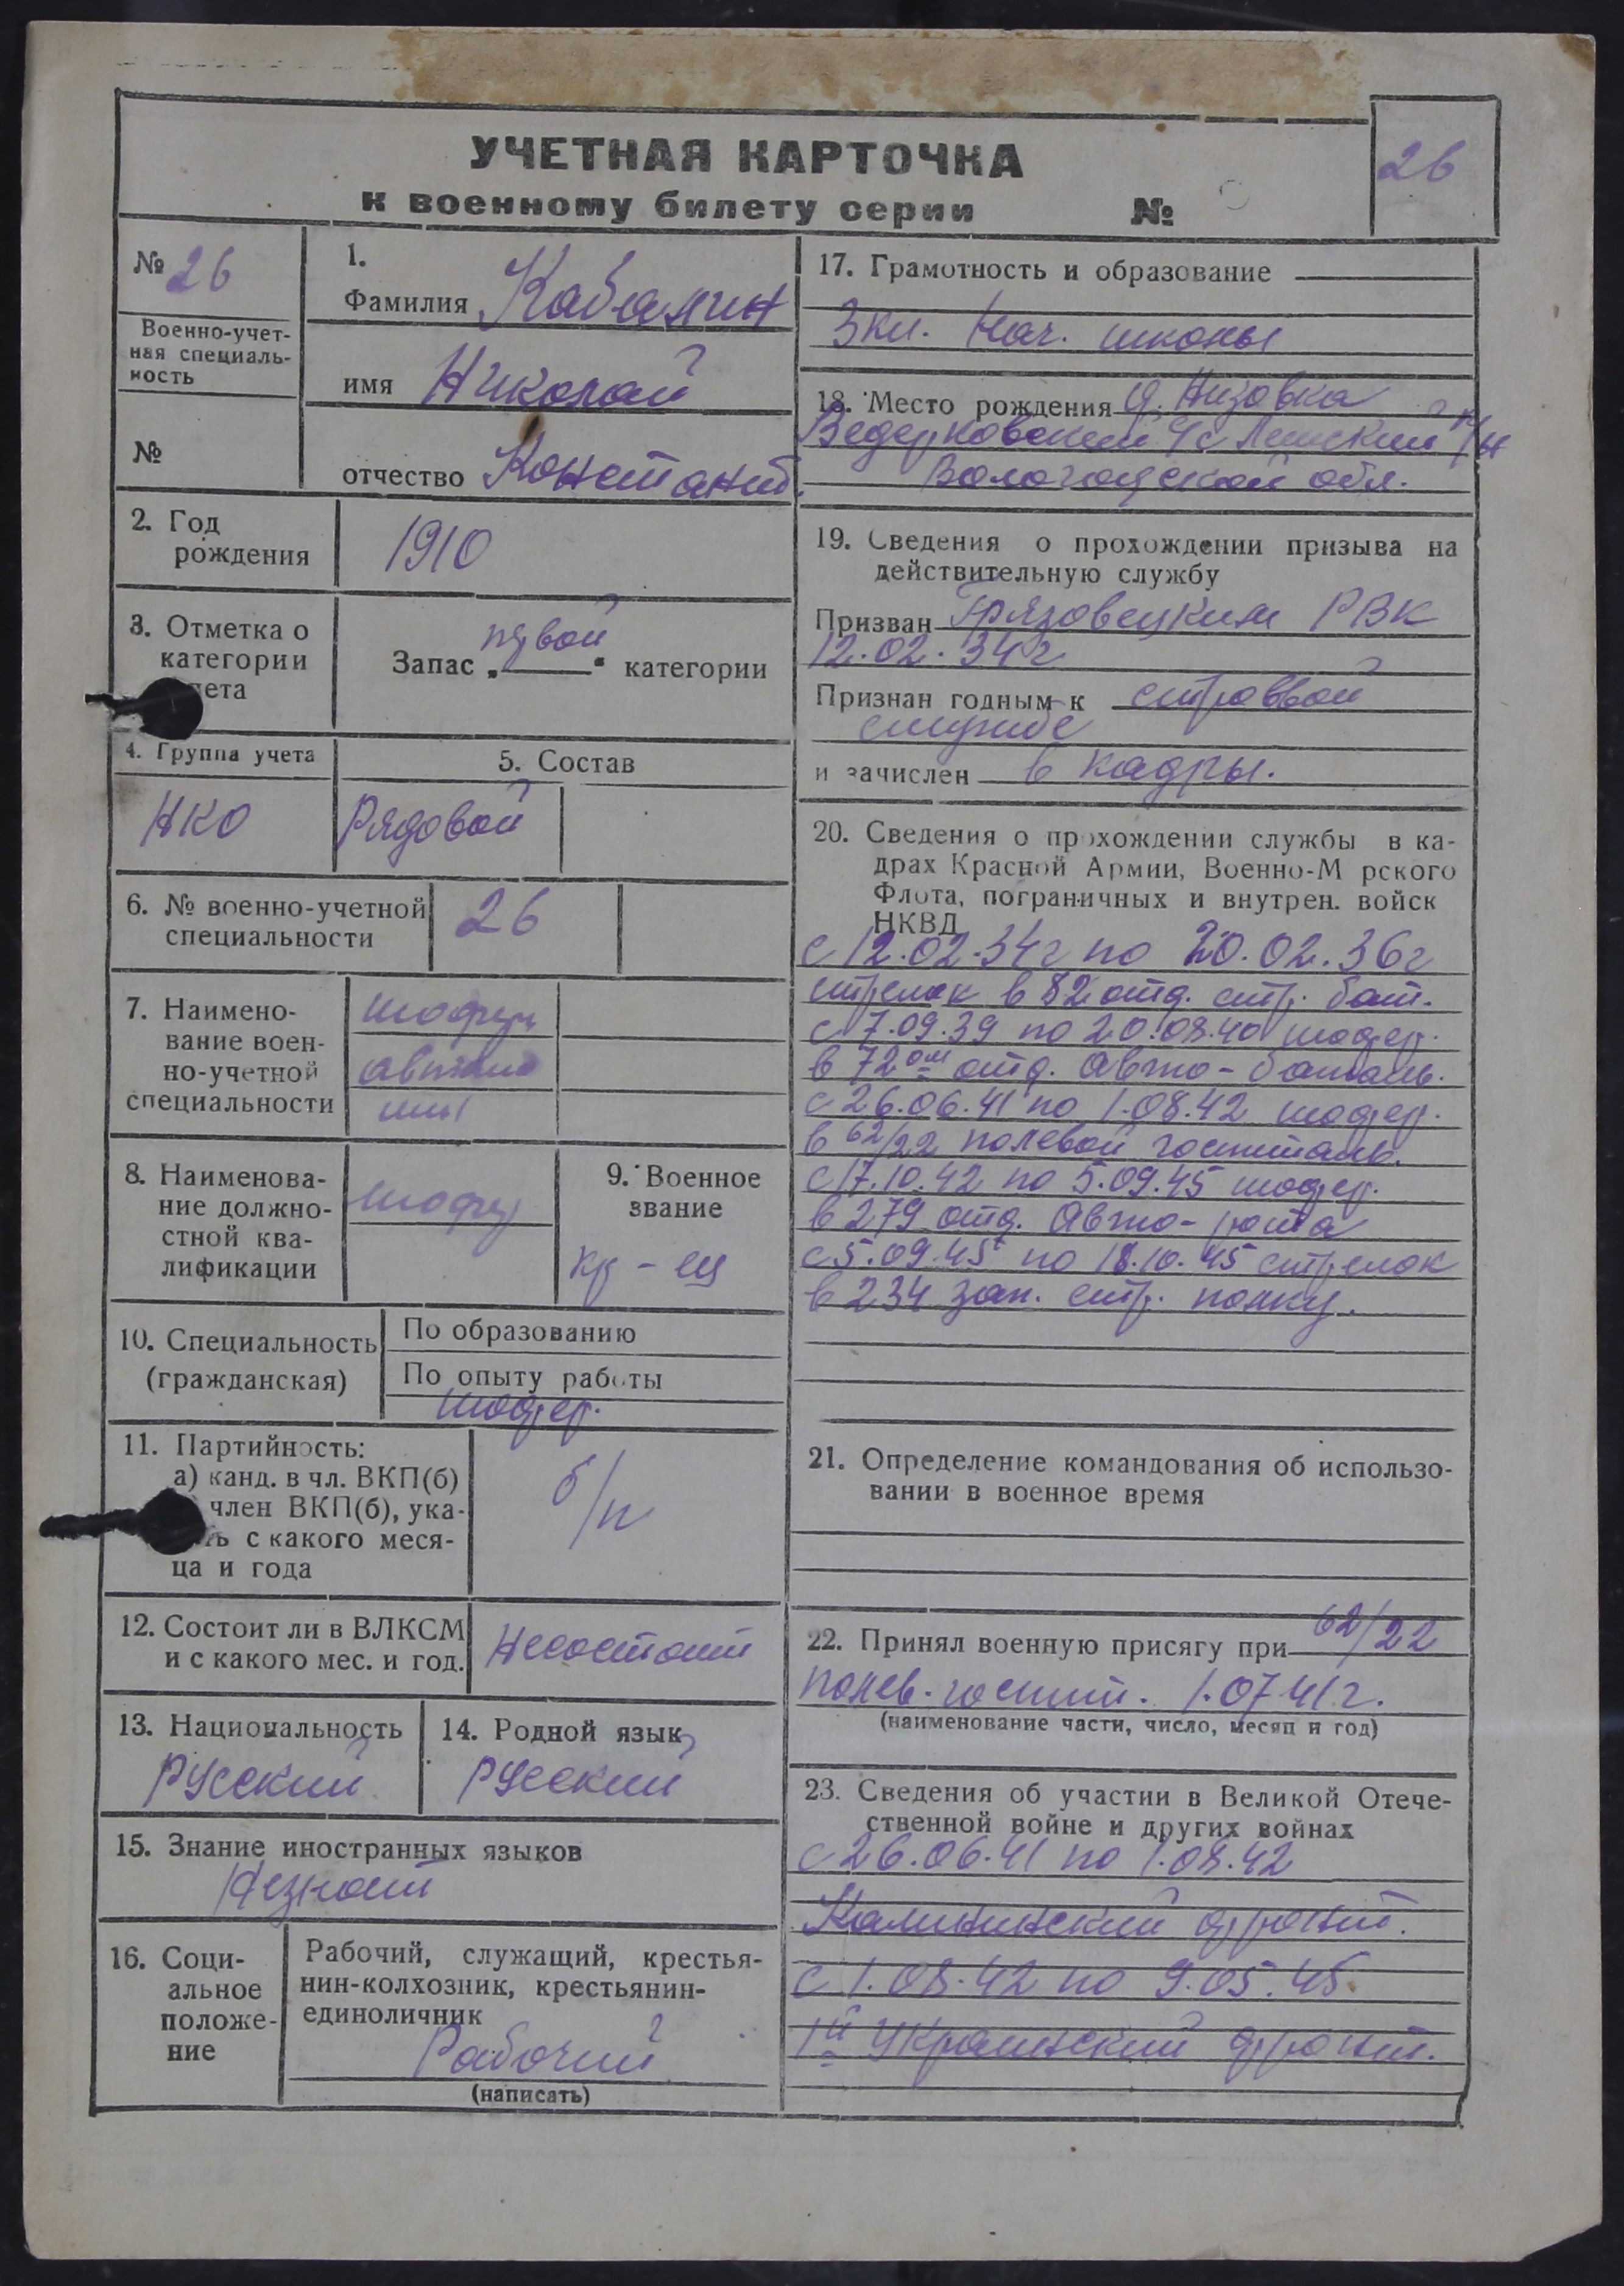 УЧЕТНАЯ КАРТОЧКА
к военному билету серии №
26
№ 26
Военно-учет-
ная специаль-
ность
№
1.
Фамилия Кабалин
имя Николай
отчество Константов.
2. Год
рождения
1910
3. Отметка о
категории
Запас „первой“ категории
4. Группа учета
НКО
5. Состав
Рядовой
6. № военно-учетной
специальности
26
7. Наимено-
вание воен-
но-учетной
специальности
шофер
автома
шины
8. Наименова-
ние должно-
стной ква-
лификации
шофер
9. Военное
звание
кр-ец
10. Специальность
(гражданская)
По образованию
По опыту работы
шофер.
11. Партийность:
а) канд. в чл. ВКП(б)
член ВКП(б), ука-
ть с какого меся-
ца и года
б/п
12. Состоит ли в ВЛКСМ
и с какого мес. и год.
Несостоит
13. Национальность
Русский
14. Родной язык
Русский
15. Знание иностранных языков
Незнает
16. Соци-
альное
положе-
ние
Рабочий, служащий, крестья-
нин-колхозник, крестьянин-
единоличник
Рабочий
(написать)
17. Грамотность и образование
3 кл. Нач. школы
18. Место рождения д. Низовка
Ведерковский с/с Лежский р/н
Вологодской обл.
19. Сведения о прохождении призыва на
действительную службу
Призван Грязовецким РВК
12.02.34г
Признан годным к строевой
службе
и зачислен в кадры.
20. Сведения о прохождении службы в ка-
драх Красной Армии, Военно-М рского
Флота, пограничных и внутрен. войск
НКВД
с 12.02.34г по 20.02.36г
стрелок в 82 отд. стр. бат.
с 7.09.39 по 20.08.40 шофер.
в 72ом отд. Авто-баталь.
с 26.06.41 по 1.08.42 шофер.
в 62/22 полевой госпиталь.
с 17.10.42 по 5.09.45 шофер.
в 279 отд. Авто-рота
с 5.09.45 по 18.10.45 стрелок
в 234 зап. стр. полку.
21. Определение командования об использо-
вании в военное время
22. Принял военную присягу при 62/22
полев. госпит. 1.07 41г.
(наименование части, число, месяц и год)
23. Сведения об участии в Великой Отече-
ственной войне и других войнах
с 26.06.41 по 1.08.42
Калининский фронт.
с 1.08.42 по 9.05.45.
1й Украинский фронт.